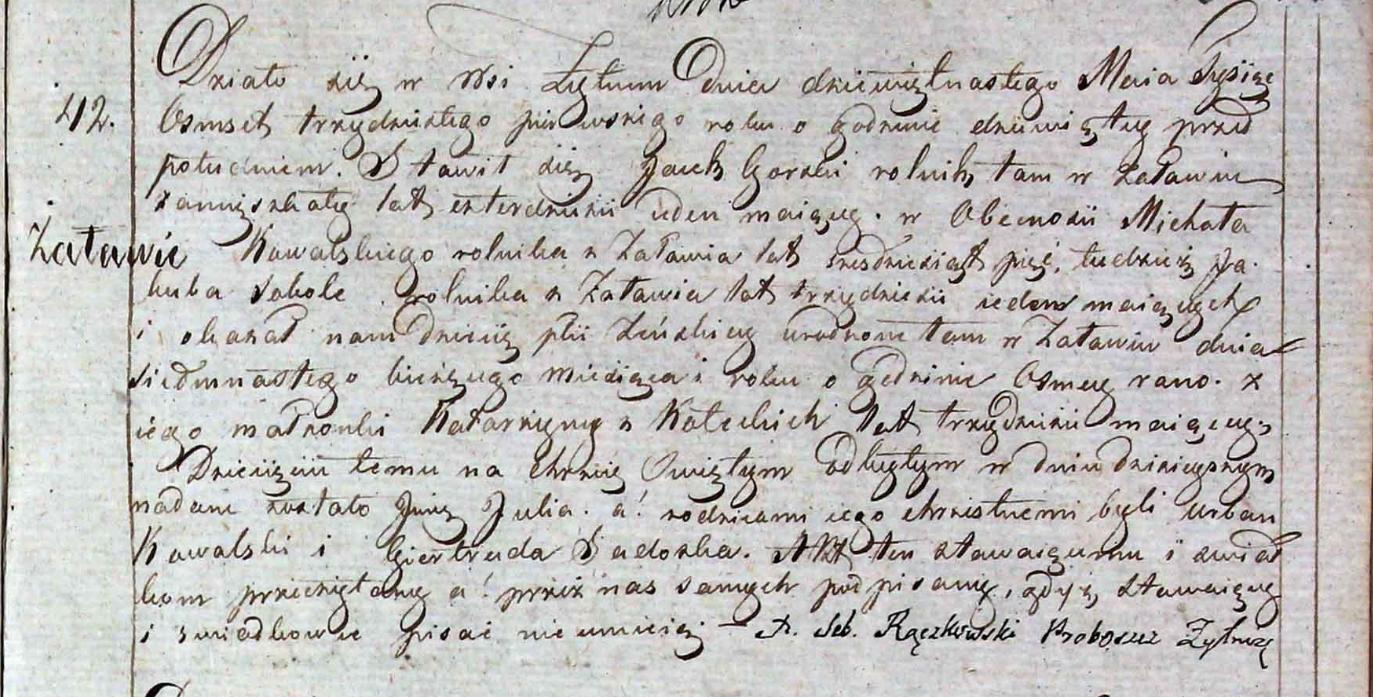 Działo się w Wsi Żytnum Dnia dziewiętnastego Maia Tysiąc
42. Osmset trzydziestego pierwszego roku o godzinie dziewiątey przed
południem. Stawił się Jacek Gorski rolnik tam w Załawiu
zamięszkały lat czterdzieści ieden maiący. w Obecności Michała
Załawie Kowalskiego rolnika z Załawia lat sześdziesiąt pięć, tudzież Ja
kuba Sokole rolnika z Załawia lat trzydzieści ieden maiących
i okazał nam Dziecię płci Żeńskiey urodzone tam w Załawiu dnia
siedmnastego bieżącego miesiąca i roku o godzinie Osmey rano. z
iego małżonki Katarzyny z Koteckich lat trzydzieści maiącey,
Dziecięciu temu na Chrzcie Swiętym odbytym w dniu dzisieyszym
nadane zostało Jmię Julia. a! rodzicami iego chrzestnemi byli Urban
Kowalski i Giertruda Sadoska. Akt ten stawaiącemu i swiad
kom przeczytany a! przez nas samych podpisany, gdyż stawaiący
i swiadkowie pisać nieumieią — X. Seb. Rączkowski Proboszcz Żytnię